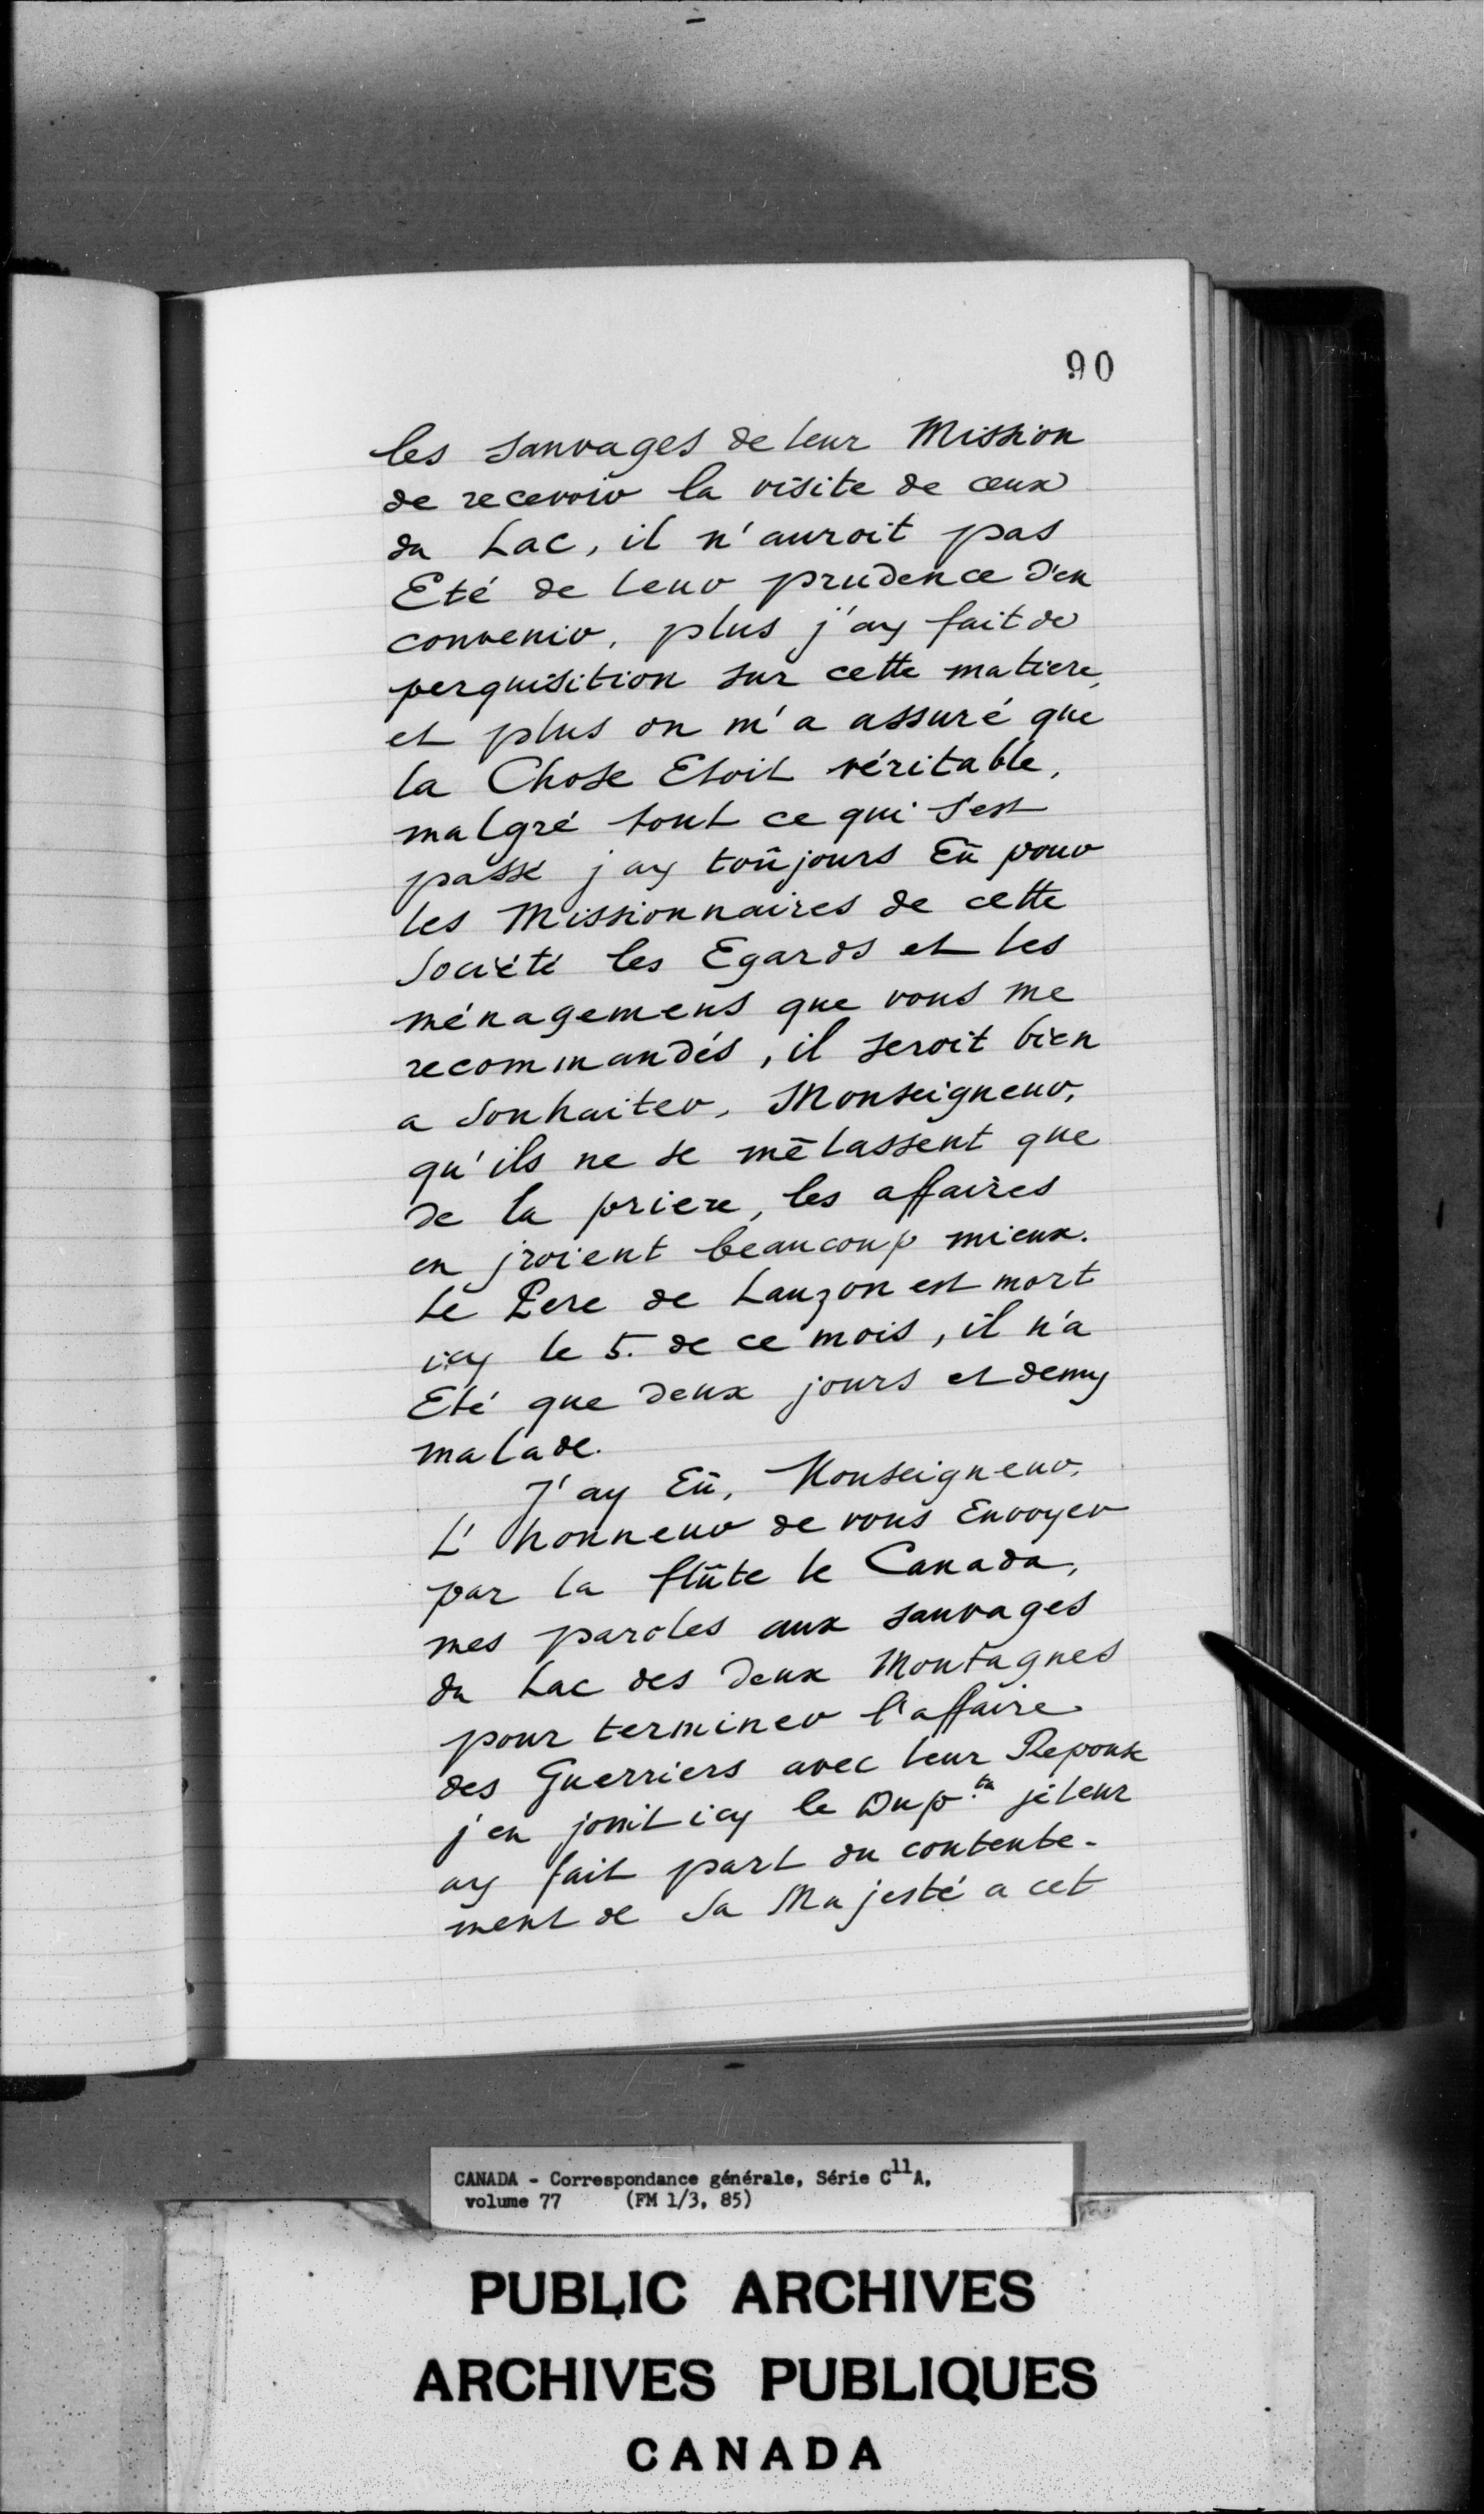 90
les sauvages de leur Mission
de recevoir la visite de ceux
du Lac, il n'auroit pas
Eté de leur prudence d'en
convenir, plus j'ay fait de
perquisition sur cette matiere,
et plus on m'a assuré que
la Chose Etoit véritable,
malgré tout ce qui s'est
passé j'ay toûjours Eû pour
les Missionnaires de cette
Société les Egards et les
ménagemens que vous me
recommandés, il seroit bien
a Souhaiter, Monseigneur,
qu'ils ne se mêlassent que
de la priere, les affaires
en jroient beaucoup mieux.
Le Pere de Lauzon est mort
icy le 5. de ce mois, il n'a
Eté que deux jours et demy
malade.
J'ay Eû, Monseigneur,
L'honneur de vous Envoyer
par la flûte le Canada,
mes paroles aux sauvages
du Lac des deux Montagnes
pour terminer l'affaire
des Guerriers avec leur Reponse
j'en joint icy le Dup.ta je leur
ay fait part du contente-
ment de Sa Majesté a cet
CANADA - Correspondance générale, Série C11A,
volume 77 (FM 1/3, 85)
PUBLIC ARCHIVES
ARCHIVES PUBLIQUES
CANADA